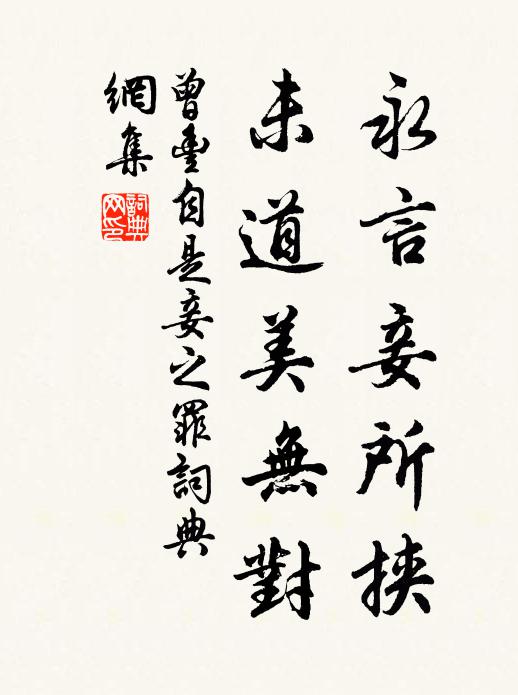 永言妾所挾
未道美無對
曾豐自是妾之罪詞典
網集
詞典网印